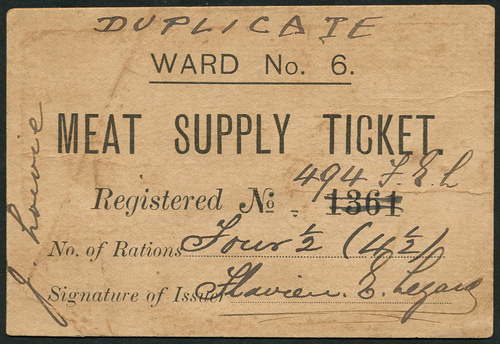 DUPLICATE
WARD No. 6.
MEAT SUPPLY TICKET
494 F. E. L
Registered No. 1361
No. of Rations Four ½ (4½)
Signature of Issuer Flavien. E. Lezard
J. Lowrie